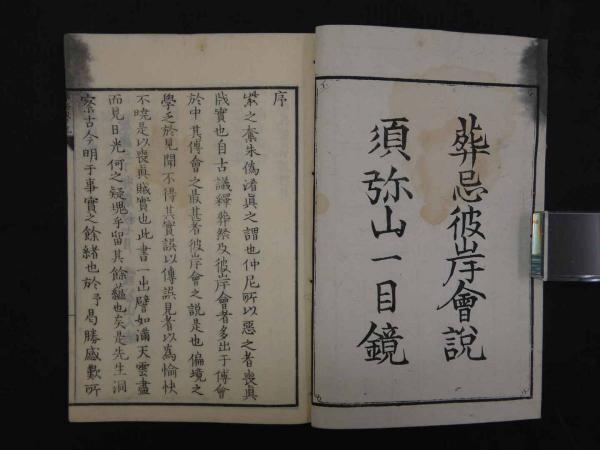 葬忌彼岸會說
須弥山一目鏡
序
紫之奪朱偽淆眞之謂也仲尼所以惡之者喪眞
賊實也自古議釋葬祭及彼岸會者多出于傅會
於中其傅會之最甚者彼岸會之說是也偏境之
學乏於見聞不得其實誤以傳誤見者以爲愉快
不曉是以喪眞賊實也此書一出譬如滿天雲盡
而見日光何之疑塊乎留其餘蘊也矣是先生洞
察古今明于事實之餘緒也於乎曷勝感歎所